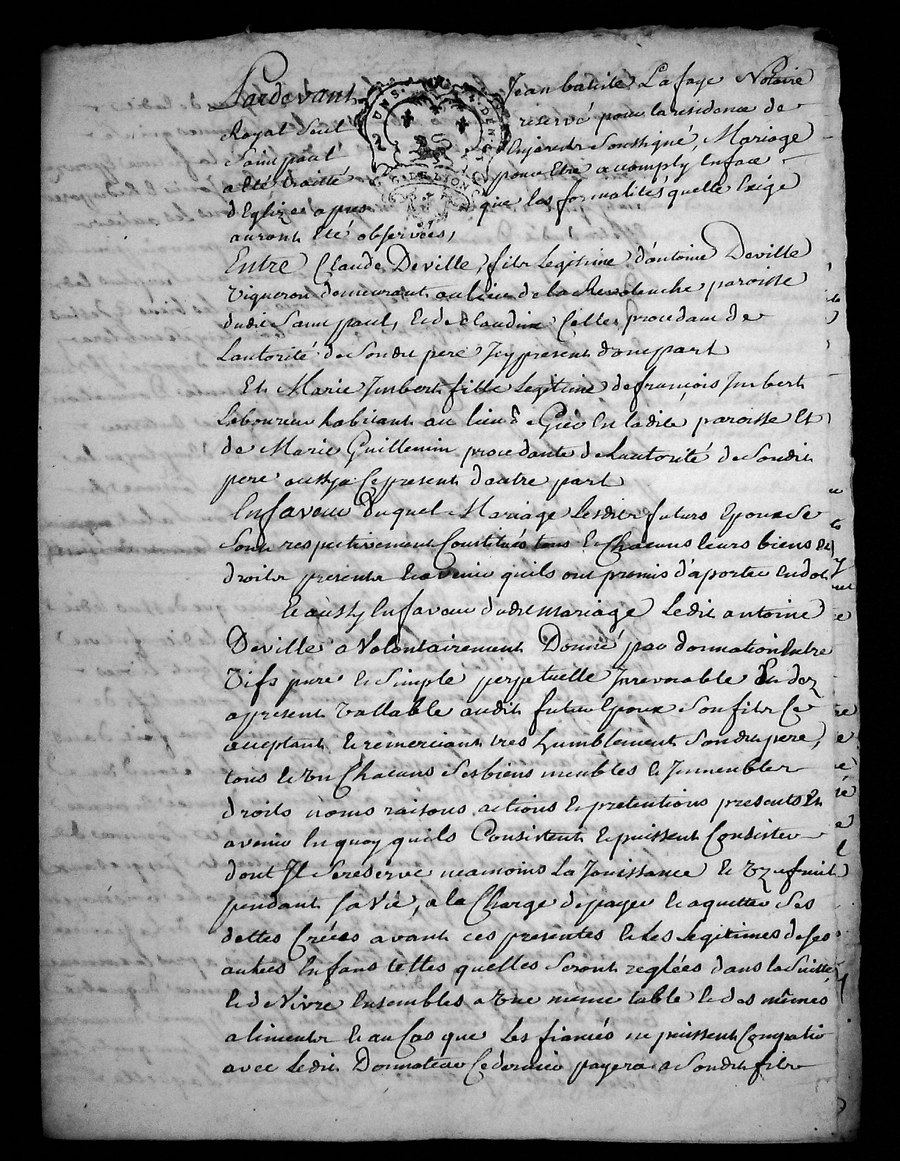 Pardevant Jean batiste Lafaye Notaire
Royal Seul reservé pour la residence de
Saint paul Enjarest Soussigné, Mariage
a été traitté pour Etre accomply Enface
d'Eglize apres que les formalités quelle Exige
auront été observées,
Entre Claude Deville, fils Legitime d'antoine Deville
Vigneron demeurant au lieu de la Revolanche paroisse
dudit Saint paul, Et de Claudine Celle, procedant de
Lautorité de Sondit pere Icy present d'une part
Et Marie Imbert fille Legitime de françois Imbert
Laboureur habitant au lieu de Giée En ladite paroisse Et
de Marie Guillemin procedante de Lautorité de Sondit
pere aussy a Ce present d'autre part
Enfaveur Duquel Mariage Lesdits futurs Epoux Se
Sont respectivement Constitués tous Et Chacuns leurs biens Et
droits presents Et avenir quils ont promis d'aporter En dot
Et aussy En faveur dudit mariage Ledit antoine
Deville a Volontairement Donné par donnation Entre
Vifs pure Et Simple perpetuelle Irrevocable Des dez
apresent Vallable audit futur Epoux Son fils Ce
acceptant Et remerciant tres humblement Sondit pere,
tous Et Un Chacuns Ses biens meubles Et Immeubles
droits noms raisons actions Et pretentions presents Et
avenir En quoy quils Consistent Et puissent Consister
dont Il Se reserve neamoins La Jouissance Et Uzufruit
pendant Sa Vie, a la Charge de payer Et aquitter Ses
dettes Créées avant ces presentes Et les Legitimes de Ses
autres Enfans telles quelles Seront reglées dans la Suitte
Et de Vivre Ensembles a Une meme table Et des mêmes
alimens Et au Cas que Les fiancés ne puissent Compatir
avec Ledit Donnateur Ce dernier payera a Sondit fils